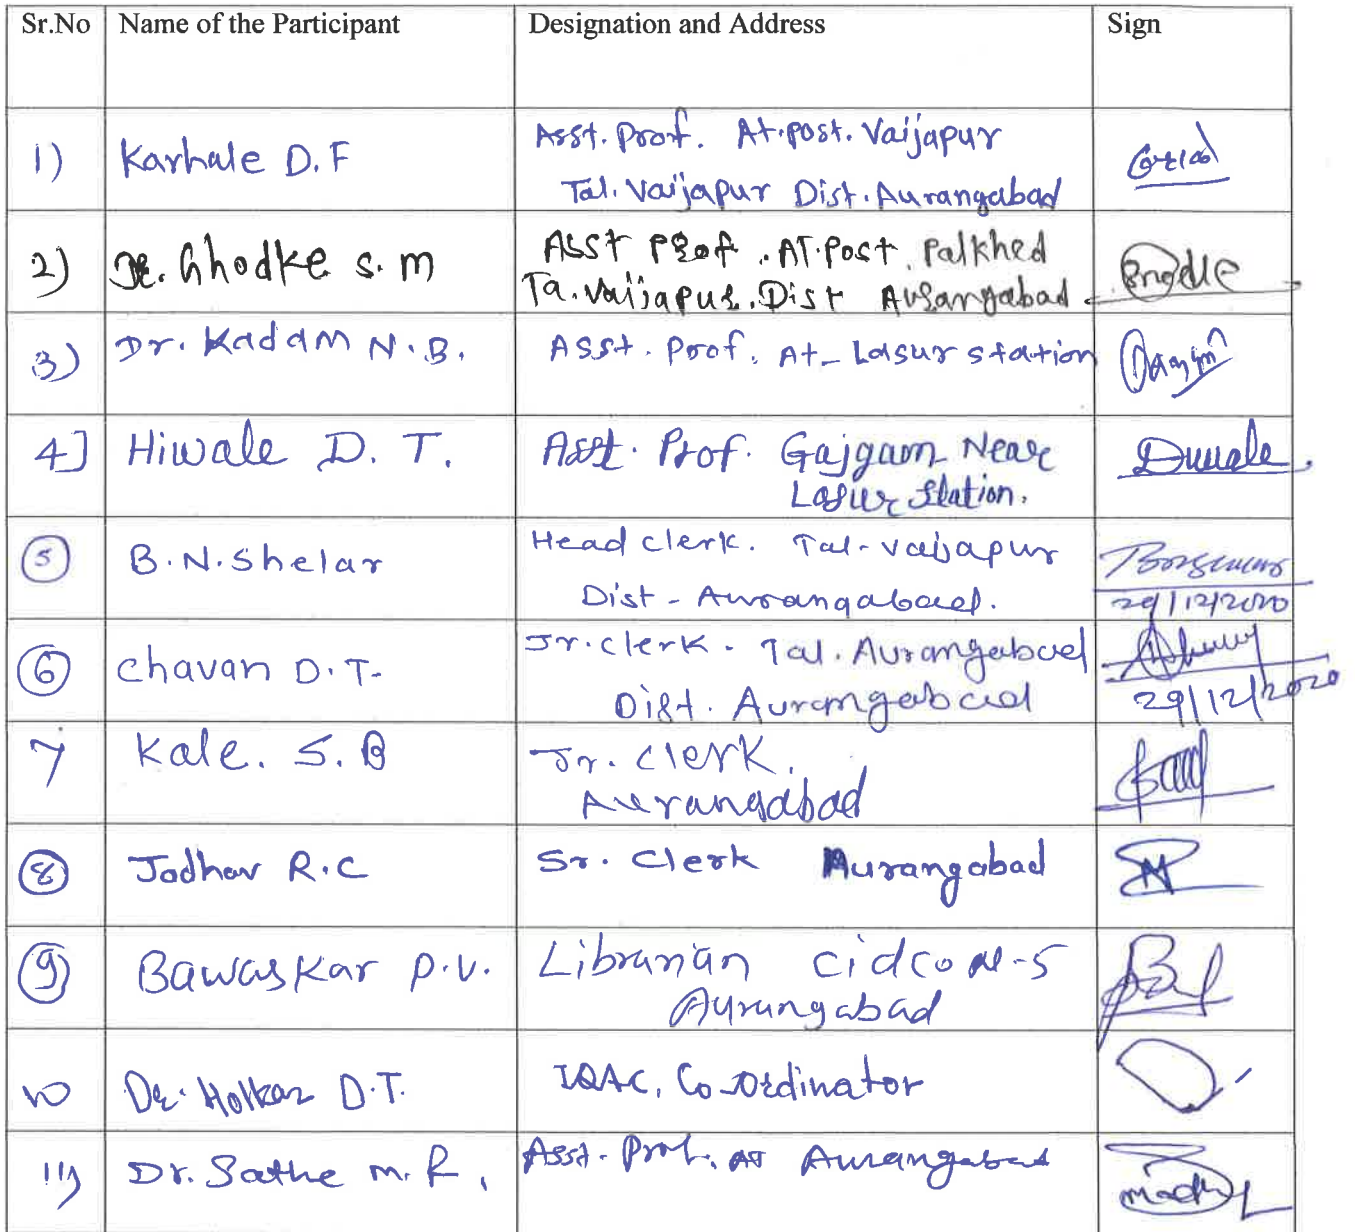 Sr.No Name of the Participant Designation and Address Sign
1) Karhale D.F Asst. Prof. At.post. Vaijapur
Tal. Vaijapur Dist. Aurangabad
2) Dr. Ghodke S. M Asst Prof. AT.Post. Palkhed
Ta. Vaijapur. Dist Aurangabad
3) Dr. Kadam N.B. Asst. Prof. At- Lasur station
4] Hiwale D. T. Asst. Prof. Gajgam Near
Lasur Station.
5 B.N.Shelar Head clerk. Tal- vaijapur
Dist - Aurangabad.
29/12/2020
6 Chavan D.T. Jr. clerk - Tal. Aurangabad
Dist. Aurangabad
29/12/2020
7 Kale. S.B Jr. clerk.
Aurangabad
8 Jadhav R.C Sr. Clerk Aurangabad
9 Bawaskar P.V. Librarian Cidco N-5
Aurangabad
10 Dr. Holkar D.T. IQAC, Co-ordinator
11) Dr. Sathe M. R. Asst. Prof. At Aurangabad